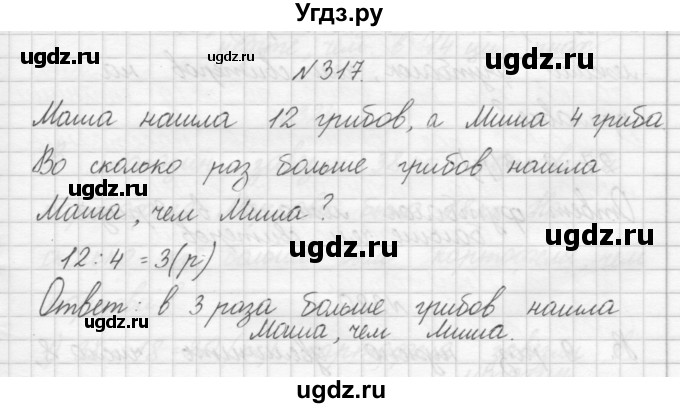 Угдз.ру
№317.
Маша нашла 12 грибов, а Миша 4 гриба
Во сколько раз больше грибов нашла
Маша, чем Миша?
12:4=3(р)
Ответ: в 3 раза больше грибов нашла
Маша, чем Миша.
ugdz.ru
ugdz.ru
ugdz.ru
ugdz.ru
ugdz.ru
ugdz.ru
ugdz.ru
ugdz.ru
ugdz.ru
ugdz.ru